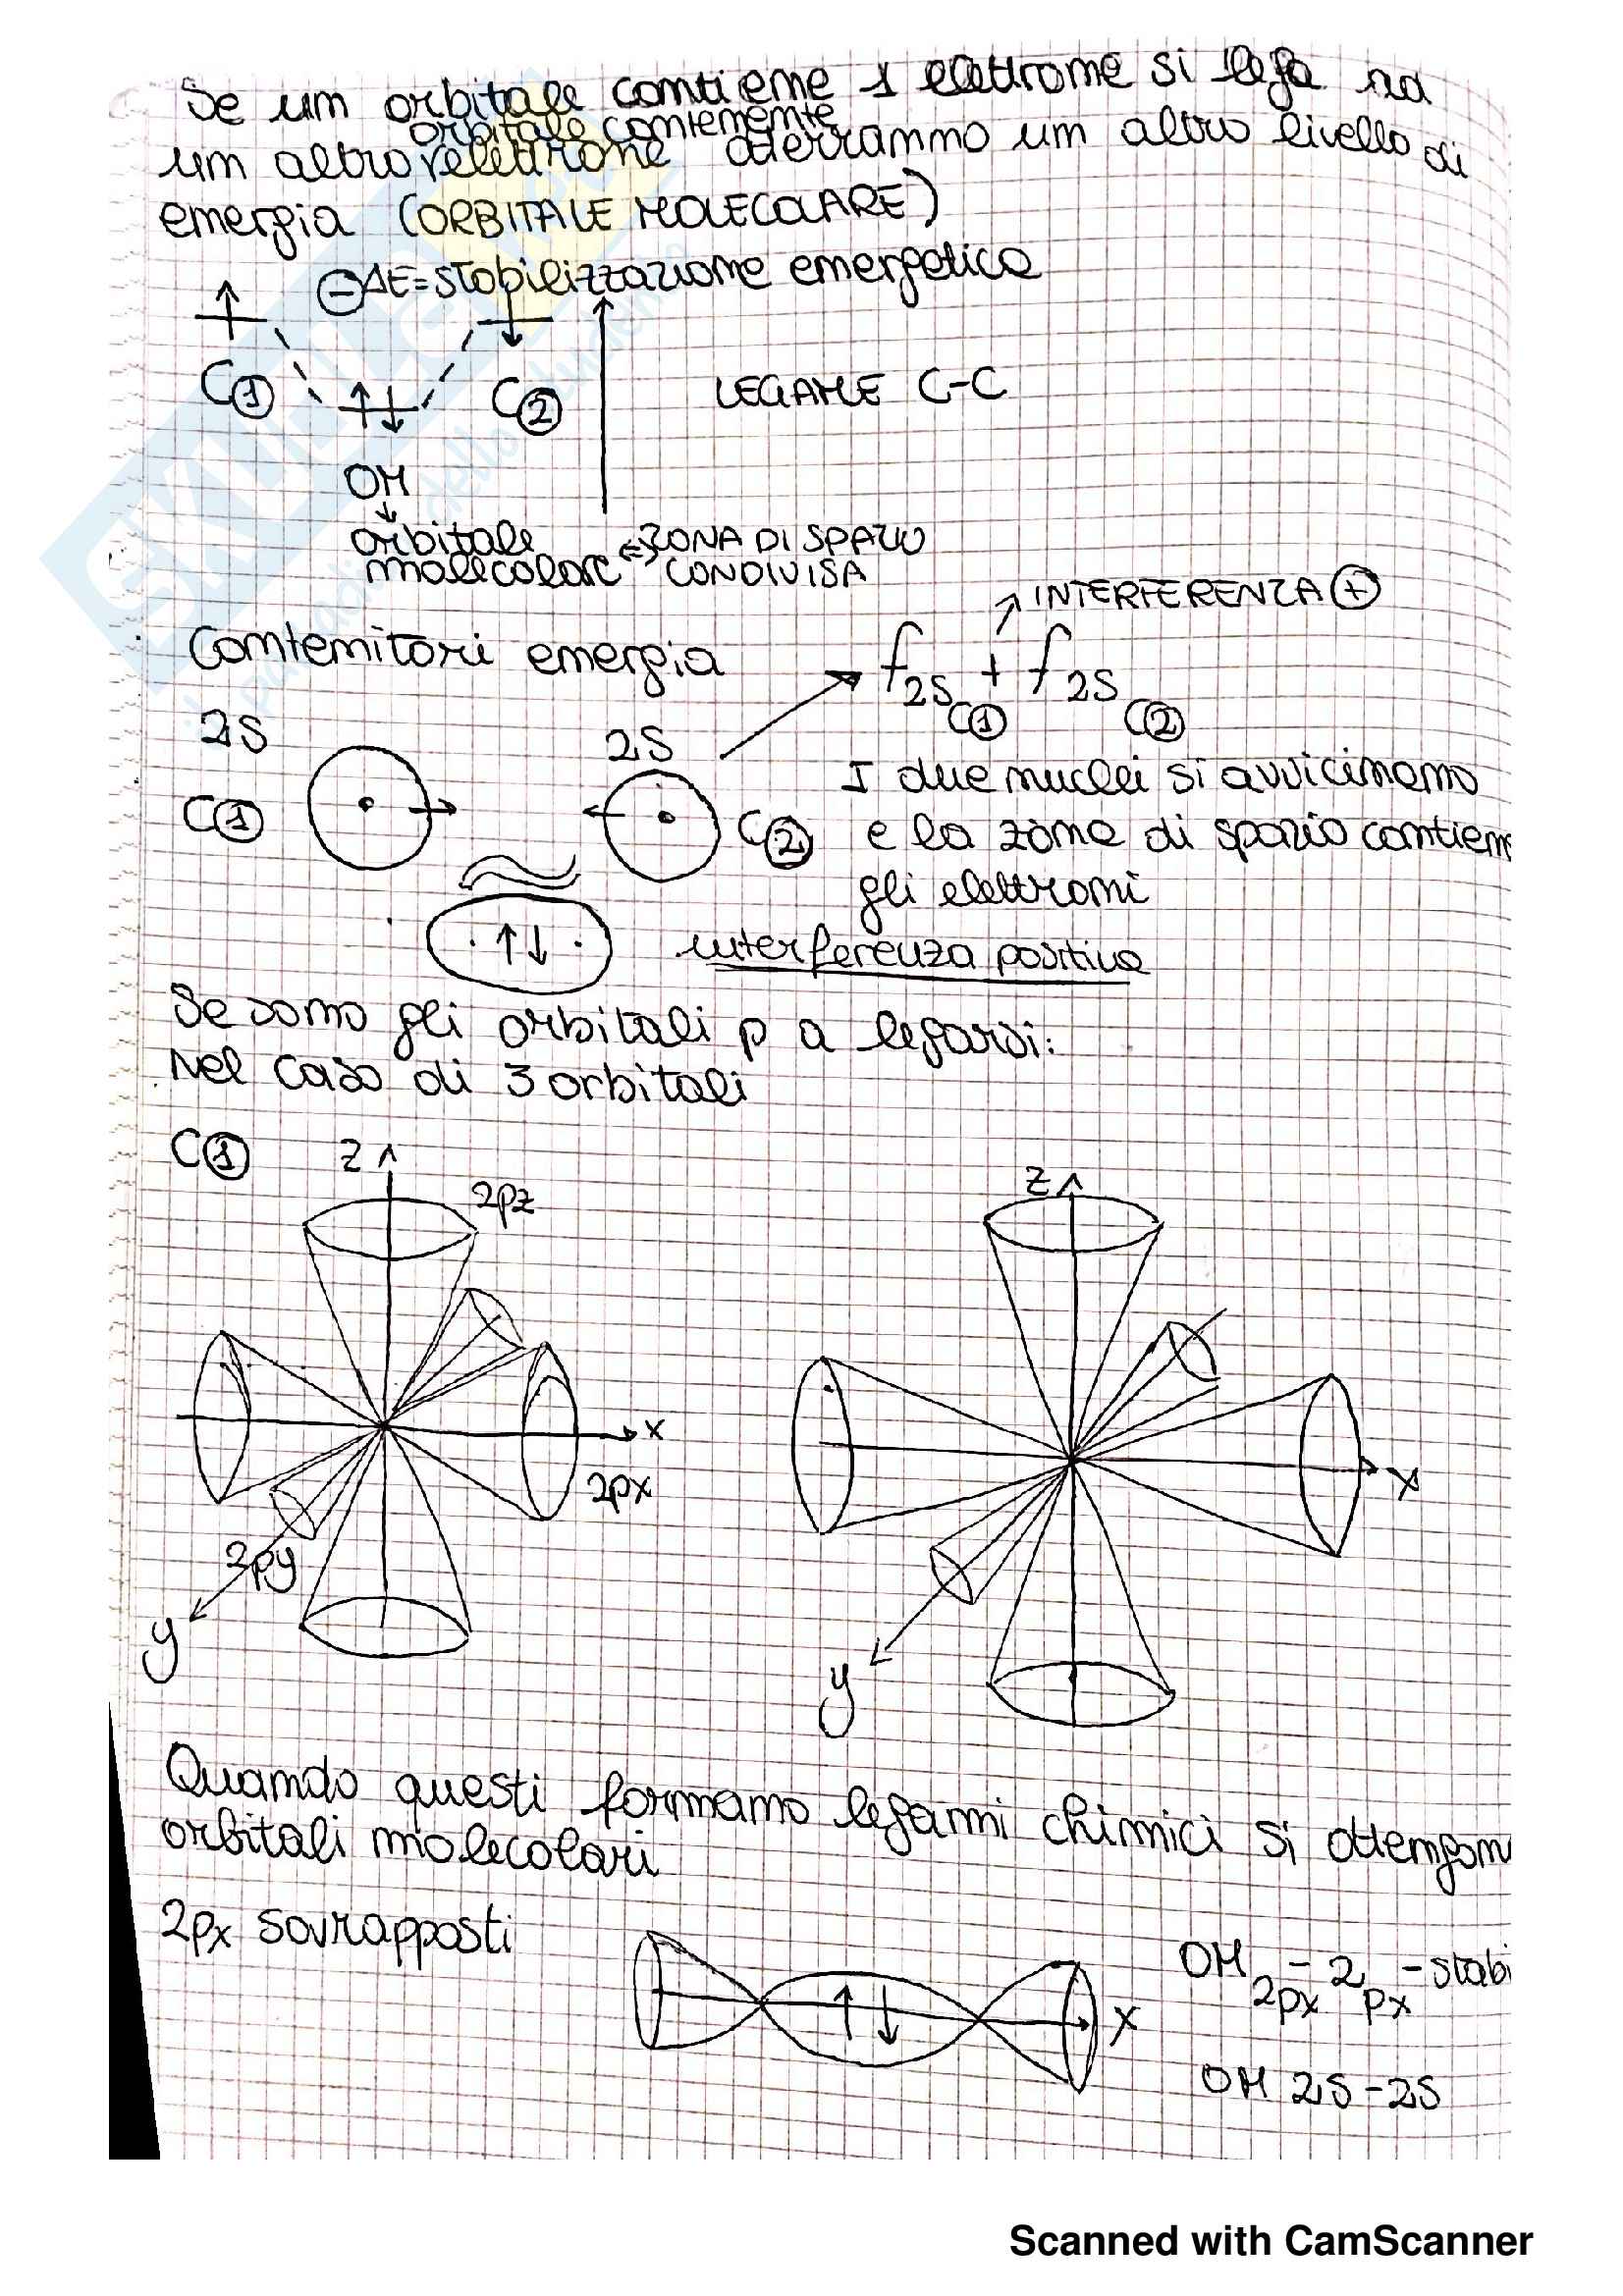 Se un orbitale contiene 1 elettrone si lega ad
orbitale contenente
un altro elettrone otterranno un altro livello di
energia (ORBITALE MOLECOLARE)
⊖ ΔE = stabilizzazione energetica
C① C② LEGAME C-C
OM
orbitale
molecolare ↔ ZONA DI SPAZIO
CONDIVISA
INTERFERENZA ⊕
Contenitori energia
f2S C① + f2S C②
2S 2S
C① C②
I due nuclei si avvicinano
e la zona di spazio contien
gli elettroni
interferenza positiva
Se sono gli orbitali p a legarsi:
Nel caso di 3 orbitali
C① Z Z
2pz
x
2px
x
2py
y
y
Quando questi formano legami chimici si ottengon
orbitali molecolari
2px sovrapposti
OM 2px - 2px - stabi
x
OM 2S - 2S
Scanned with CamScanner